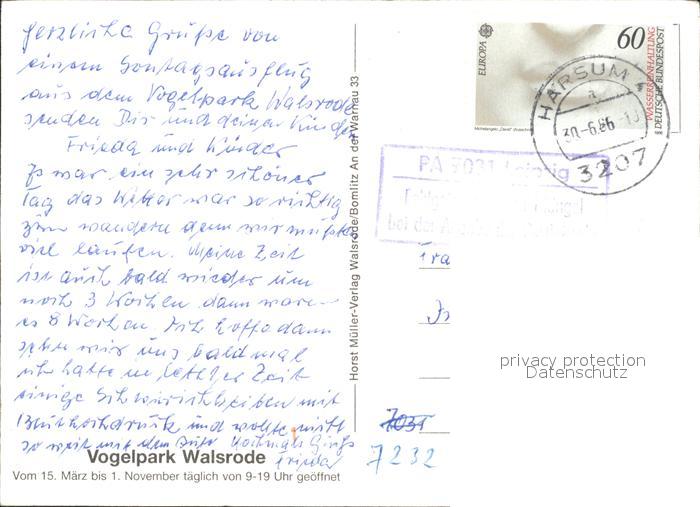 Herzliche Grüße von
einem Sontagsausflug
aus dem Vogelpark Walsrode
senden Dir und deiner Kinder
Frieda und Kinder
Es war ein sehr schöner
Tag das Wetter war so richtig
zum wandern denn wir mußten
viel laufen. Meine Zeit
ist auch bald wieder um
noch 3 Wochen dann waren
es 8 Wochen. Ich hoffe dann
sehen wir uns bald mal
ich hatte in letzter Zeit
einige Schwierichkeiten mit
Bluthochdruck und wollte nicht
so weit mit dem Auto Nochmals Grüße
Frieda
Vogelpark Walsrode
Vom 15. März bis 1. November täglich von 9-19 Uhr geöffnet
Horst Müller-Verlag Walsrode/Bomlitz An der Warnau 33
EUROPA
60
WASSERREINHALTUNG
DEUTSCHE BUNDESPOST
HARSUM 1
a
30.-6.86-10
3207
PA 7031 Leipzig
bei der
Fra
7031
7232
privacy protection
Datenschutz